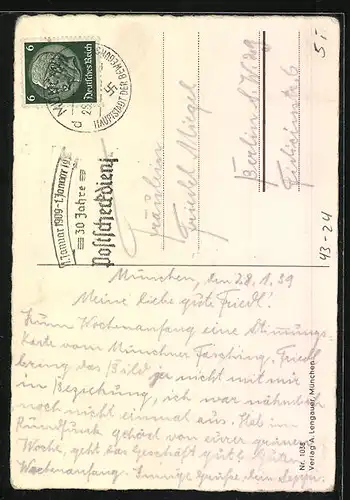 6 Deutsches Reich 6
HAUPTSTADT DER BEWEGUNG
1. Januar 1909-1. Januar 19
30 Jahre
Postscheckdienst
Fräulein
Friedel Miegel
Berlin
5 I
43-24
München, den 28.1.39
Meine liebe gute Friedl!
Zum Wochenanfang eine Stimmungs-
karte vom Münchner Fasching. Friedl
bring das Bild ja nicht mit mir
in Beziehung, ich war nämlich
noch nicht einmal aus. Hab im
Rundfunk gehört von eurer grünen
Woche, geht das Geschäft gut?
Wochenanfang. Innige Grüße dein Sepp
Nr. 1035
Verlag A. Lengauer, München